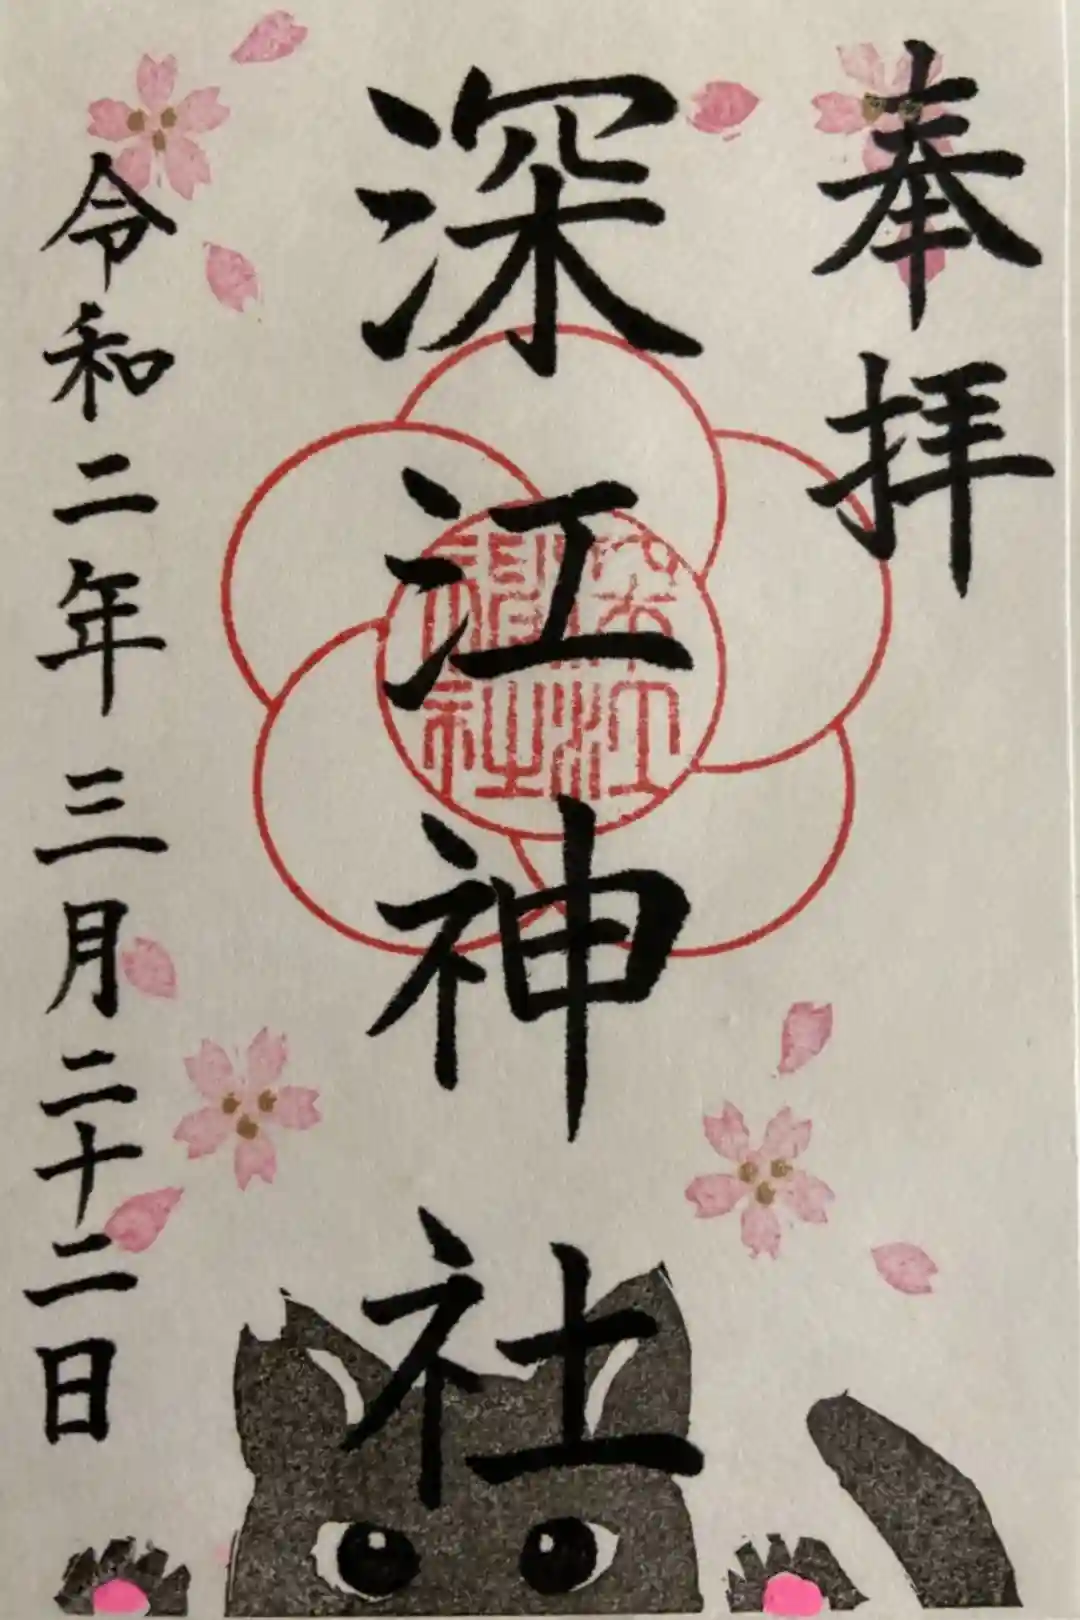 奉拝
深江神社
深江
神社
令和二年三月二十二日